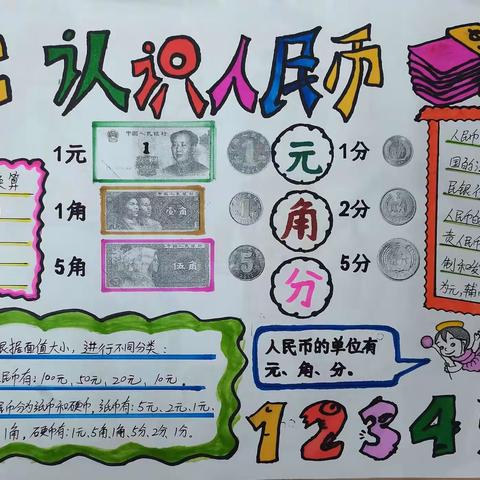 认识人民币
1元
中国人民银行
1
元
1分
换算
1角
壹角
1
角
2分
5角
中国人民银行
伍角
5
分
5分
人民币
国的法
民银行
人民币的
责人民币
制和发
为元,辅
根据面值大小,进行不同分类:
民币有:100元、50元、20元、10元。
民币分为纸币和硬币,纸币有:5元、2元、1元、
1角,硬币有:1元、5角、1角、5分、2分、1分。
人民币的单位有
元、角、分。
1234